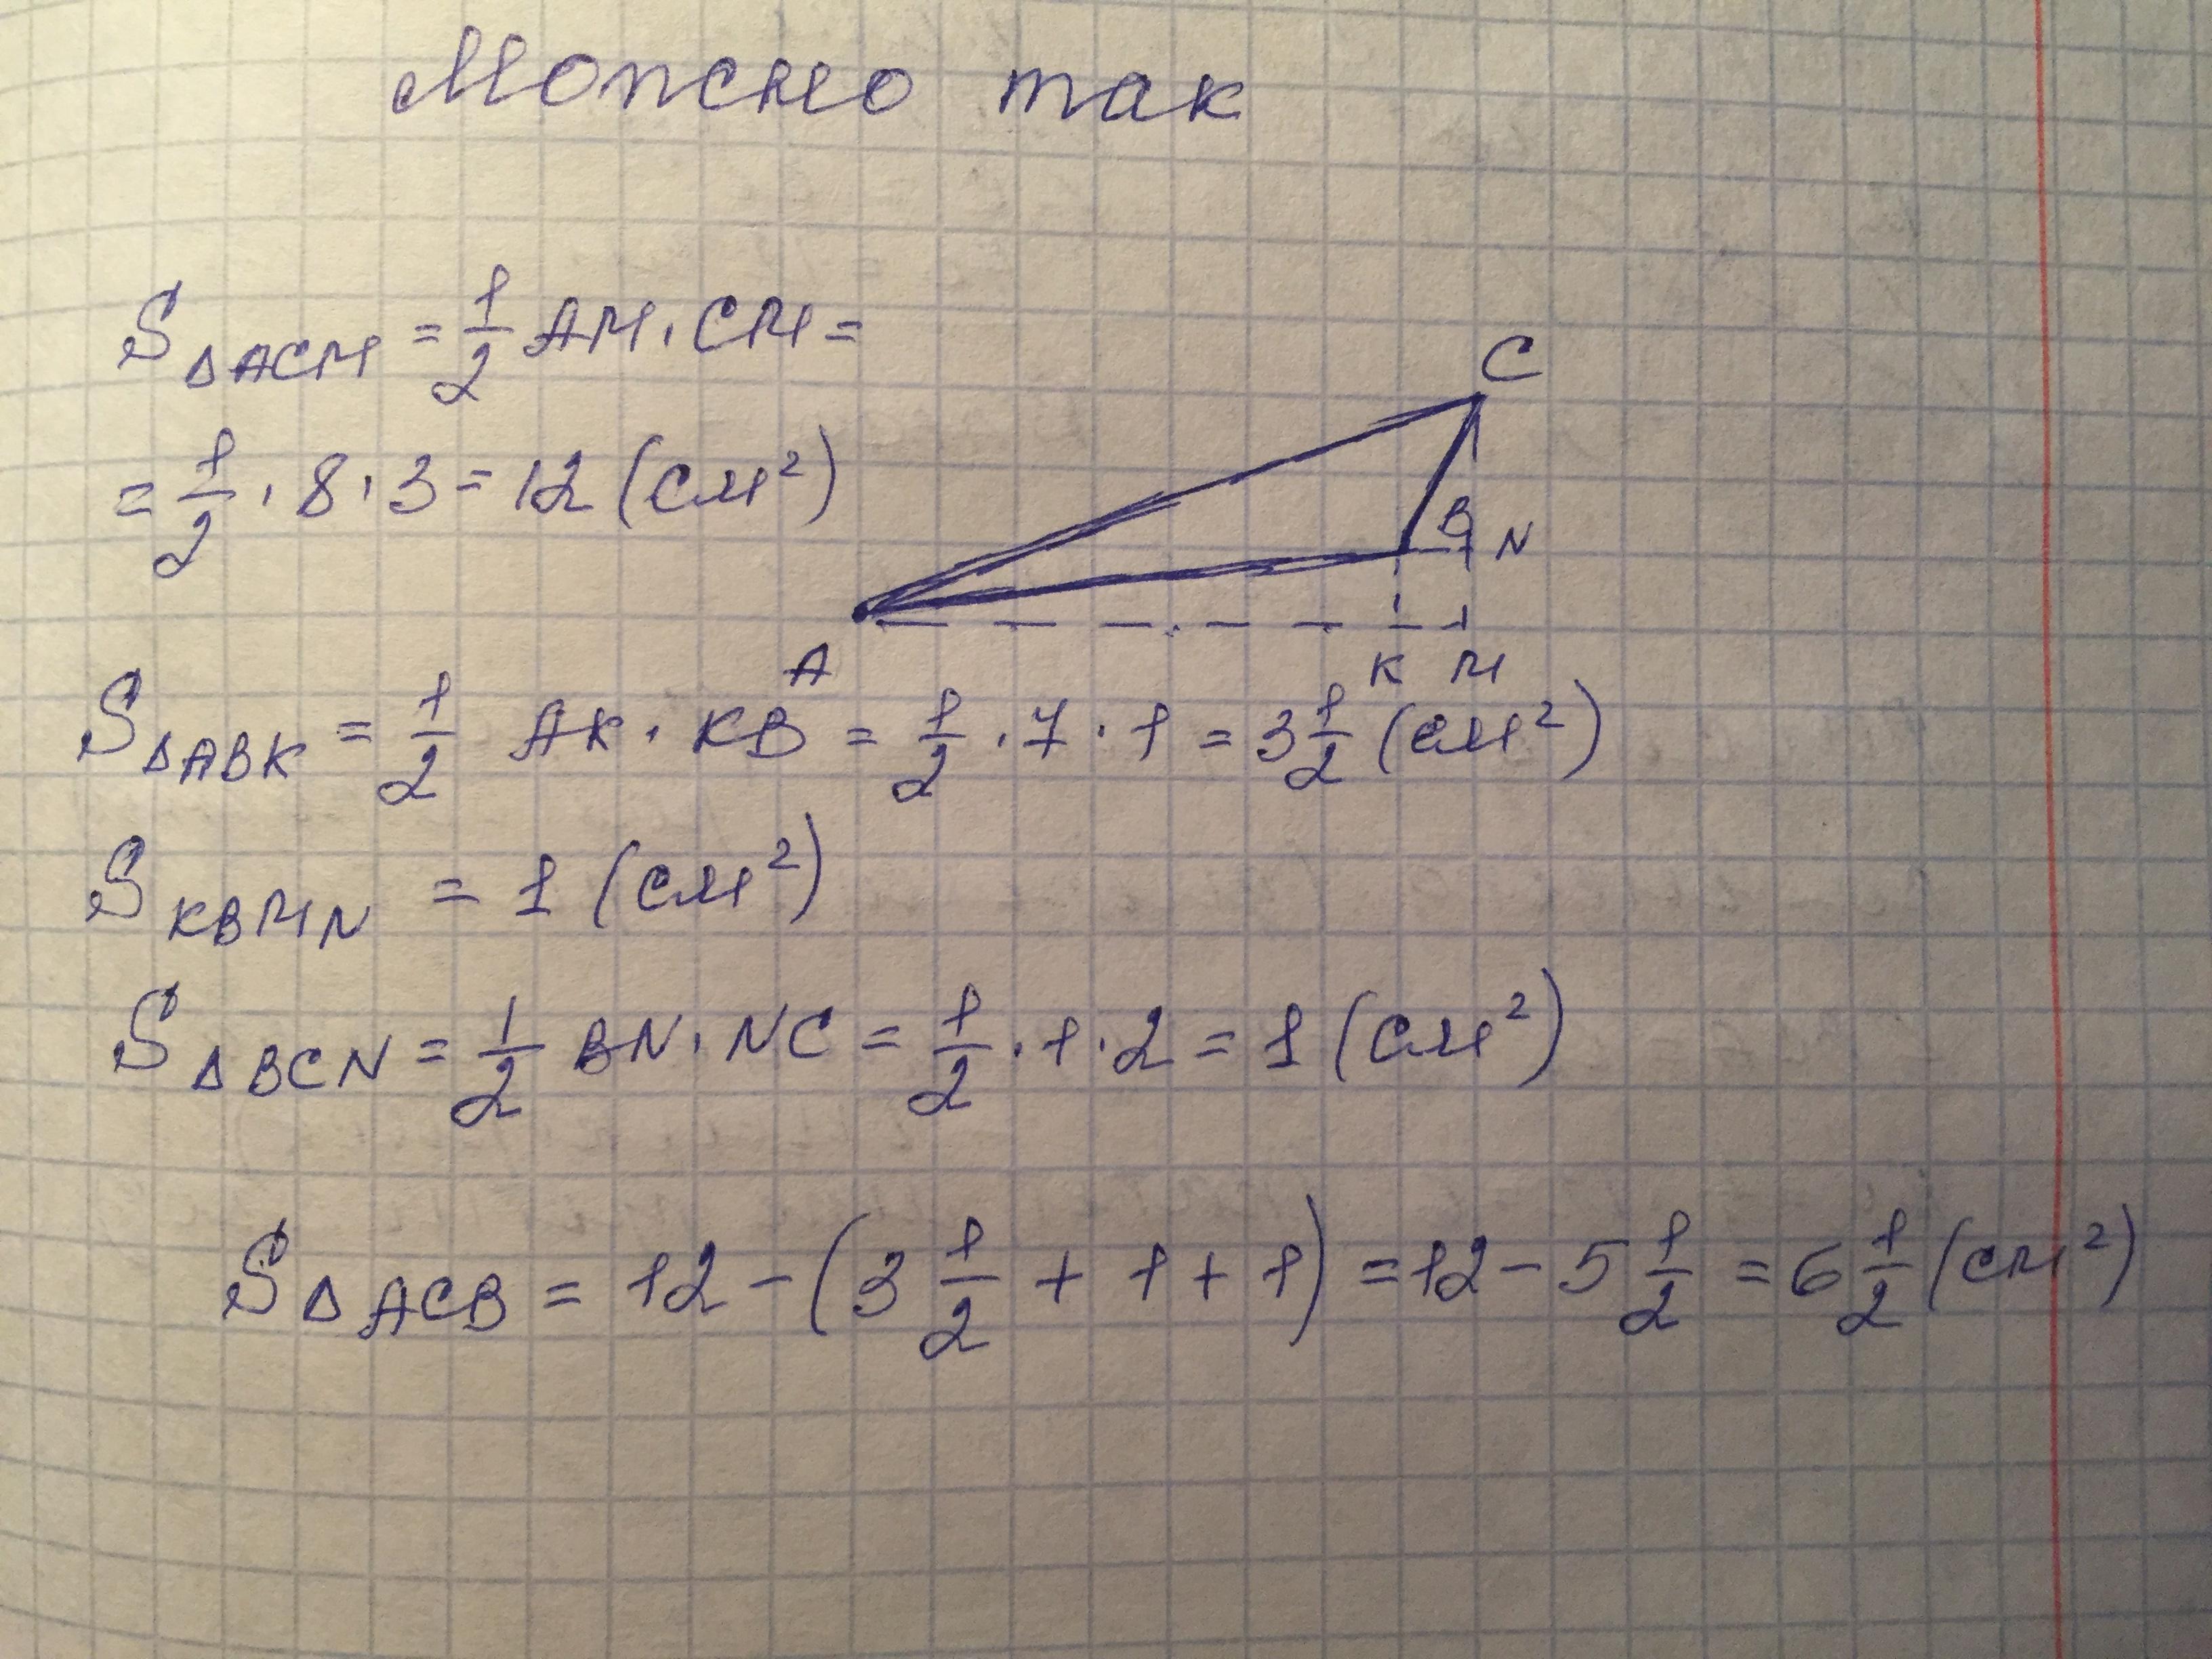 Можно так
S△ACM = 1/2 AM · CM =
= 1/2 · 8 · 3 = 12 (см²)
C
B N
A
K M
S△ABK = 1/2 AK · KB = 1/2 · 7 · 1 = 3 1/2 (см²)
SKBMN = 1 (см²)
S△BCN = 1/2 BN · NC = 1/2 · 1 · 2 = 1 (см²)
S△ACB = 12 - (3 1/2 + 1 + 1) = 12 - 5 1/2 = 6 1/2 (см²)